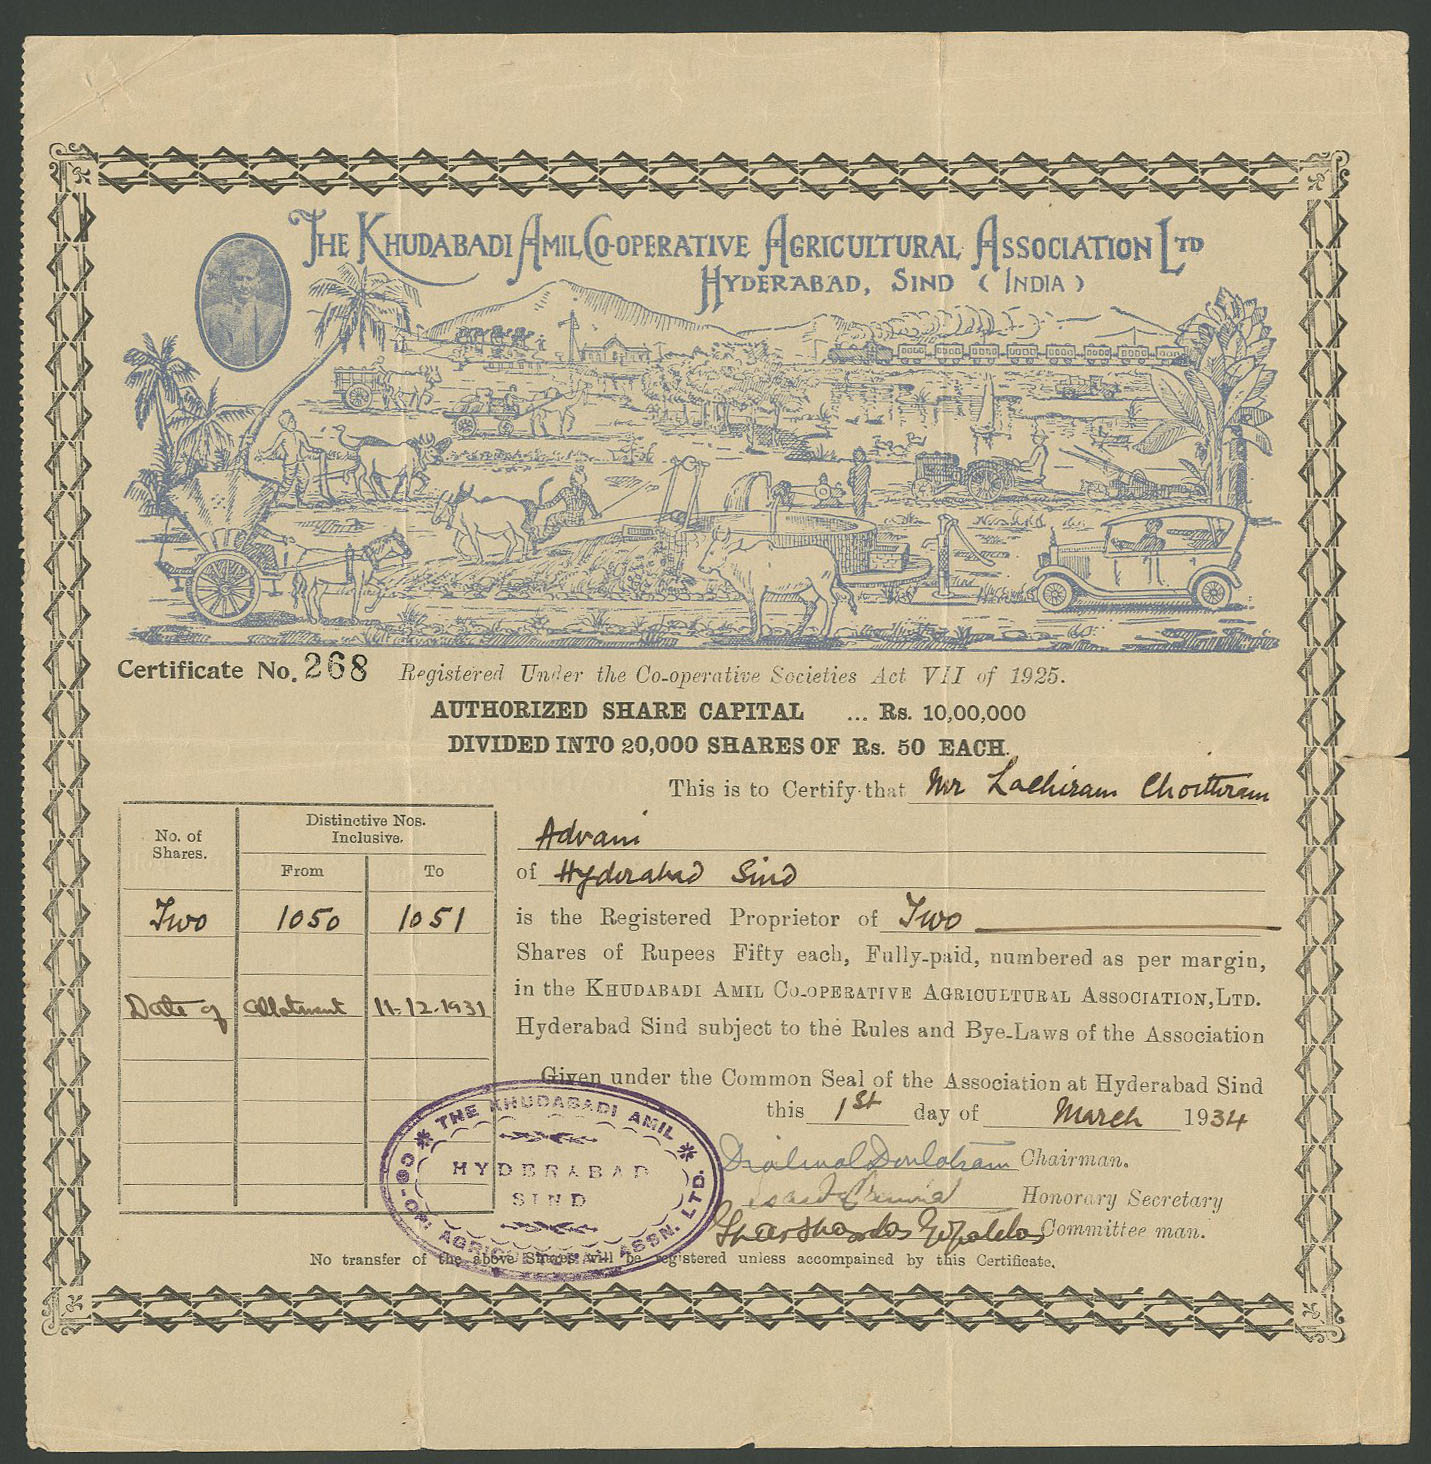 THE KHUDABADI AMIL CO-OPERATIVE AGRICULTURAL ASSOCIATION LTD
HYDERABAD, SIND (INDIA)
Certificate No. 268 Registered Under the Co-operative Societies Act VII of 1925.
AUTHORIZED SHARE CAPITAL ... Rs. 10,00,000
DIVIDED INTO 20,000 SHARES OF Rs. 50 EACH.
This is to Certify that Mr Lachiram Choithram
Advani
of Hyderabad Sind
is the Registered Proprietor of Two
Shares of Rupees Fifty each, Fully-paid, numbered as per margin,
in the KHUDABADI AMIL CO-OPERATIVE AGRICULTURAL ASSOCIATION, LTD.
Hyderabad Sind subject to the Rules and Bye-Laws of the Association
Given under the Common Seal of the Association at Hyderabad Sind
this 1st day of March 1934
No. of Shares.
Distinctive Nos. Inclusive.
From To
Two 1050 1051
Date of allotment 11-12-1931
Chairman.
Honorary Secretary
Committee man.
THE KHUDABADI AMIL
CO-OP. AGRICULTURAL ASSN. LTD.
HYDERABAD
SIND
No transfer of the above Shares will be registered unless accompained by this Certificate.